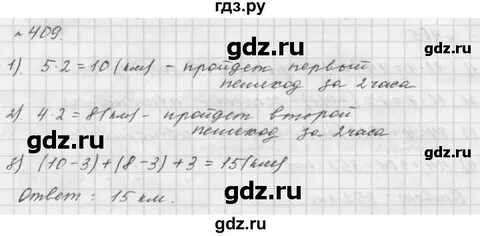 гдз.ру
№ 409.
1). 5·2 = 10 (км) - пройдет первый
пешеход за 2 часа
2). 4·2 = 8 (км) - пройдет второй
пешеход за 2 часа
3). (10 - 3) + (8 - 3) + 3 = 15 (км)
Ответ: 15 км.
gdz.ru gdz.ru gdz.ru
gdz.ru gdz.ru gdz.ru
gdz.ru gdz.ru gdz.ru